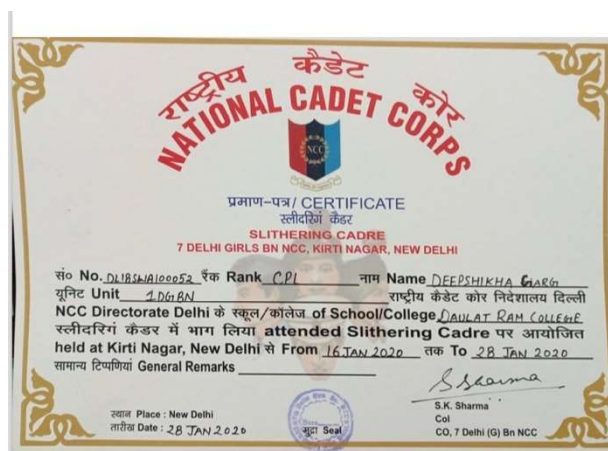 राष्ट्रीय कैडेट कोर
NATIONAL CADET CORPS
NCC
प्रमाण-पत्र/ CERTIFICATE
स्लीदरिगं कैडर
SLITHERING CADRE
7 DELHI GIRLS BN NCC, KIRTI NAGAR, NEW DELHI
सं० No. DL18SWA100052 रैंक Rank CPL नाम Name DEEPSHIKHA GARG
यूनिट Unit 1DGBN राष्ट्रीय कैडेट कोर निदेशालय दिल्ली
NCC Directorate Delhi के स्कूल/कॉलेज of School/College DAULAT RAM COLLEGE
स्लीदरिगं कैडर में भाग लिया attended Slithering Cadre पर आयोजित
held at Kirti Nagar, New Delhi से From 16 JAN 2020 तक To 28 JAN 2020
सामान्य टिप्पणियां General Remarks
SSharma
स्थान Place : New Delhi
तारीख Date : 28 JAN 2020
मुद्रा Seal
S.K. Sharma
Col
CO, 7 Delhi (G) Bn NCC